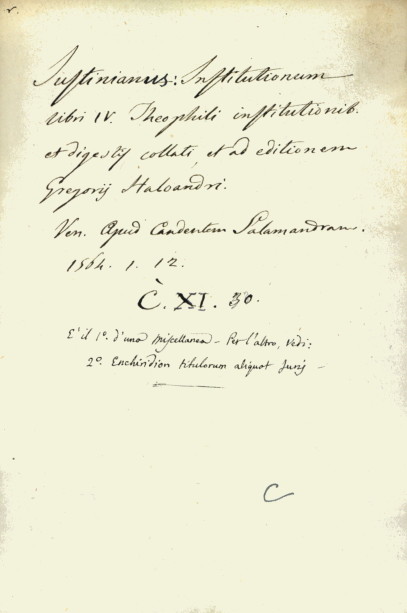 Justinianus: Institutionum
libri IV. Theophili institutionib.
et digestij collati, et ad editionem
Gregorij Haloandri.
Ven. Apud Candentem Salamandram.
1564. 1. 12.
C. XI. 30.
E' il 1º. d'una Miscellanea – Per l'altro, vedi:
2º. Enchiridion titulorum aliquot Jurij –
C